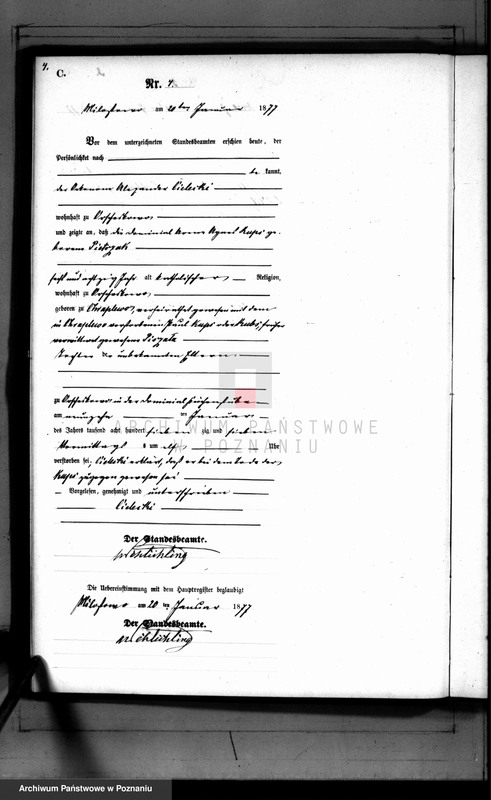 4.
C.
Nr. 4.
Milostowo am 20ten Januar 1877
Vor dem unterzeichneten Standesbeamten erschien heute, der
Persönlichkeit nach
be kannt,
der Oekonom Alexander Cielecki
wohnhaft zu
und zeigte an, daß die Dominial Arme Agnes Kupś ge-
borene Pietrzak
sechs und achtzig Jahr alt katholischer Religion,
wohnhaft zu
geboren zu Chraplewo, verheirathet gewesen mit dem
in Chraplewo verstorbenen Paul Kupś oder Kubś, früher
verwittwet gewesene
Tochter der unbekannten Eltern.
zu in der Dominial
am neunzehnten Januar
des Jahres tausend acht hundert siebenzig und sieben
Vormittags um elf Uhr
verstorben sei, Cielecki erklärt, daß er bei dem Tode der
Kupś zugegen gewesen sei
Vorgelesen, genehmigt und unterschrieben
Cielecki
Der Standesbeamte.
Die Uebereinstimmung mit dem Hauptregister beglaubigt
Milostowo am 20 ten Januar 1877
Der Standesbeamte.
ARCHIWUM PAŃSTWOWE
W POZNANIU
Archiwum Państwowe w Poznaniu